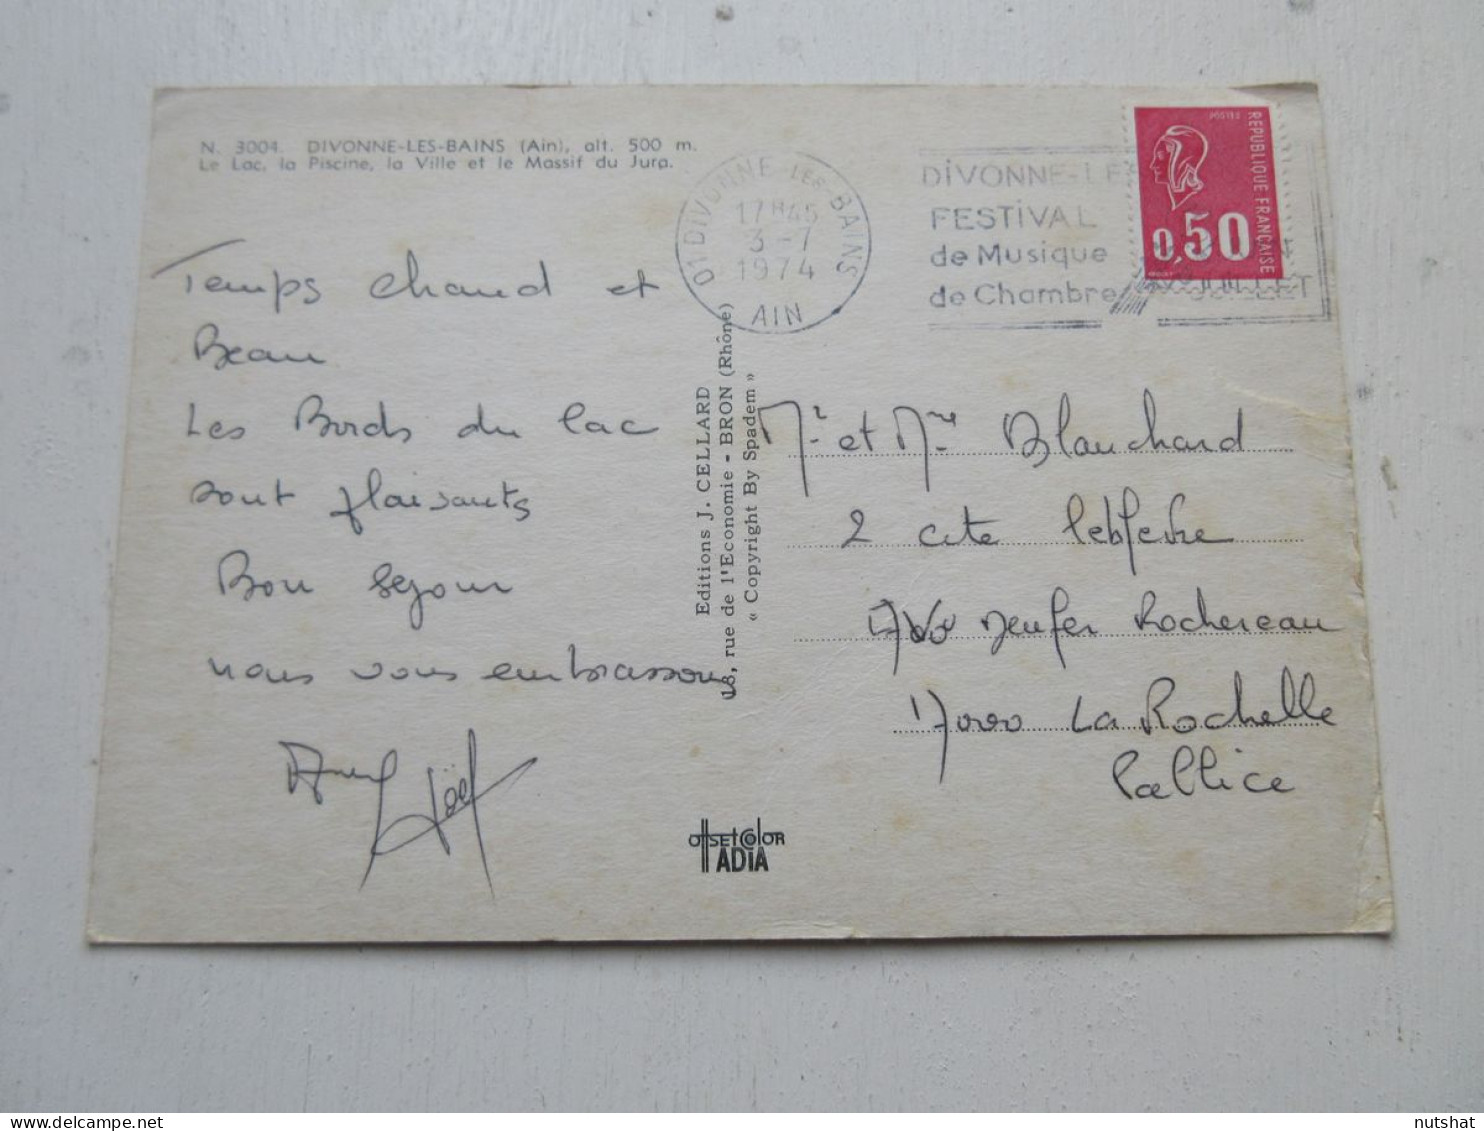 N. 3004. DIVONNE-LES-BAINS (Ain), alt. 500 m.
Le Lac, la Piscine, la Ville et le Massif du Jura.
Temps chaud et
Beau
Les Bords du lac
sont plaisants
Bon séjour
nous vous embrassons
Joël
Editions J. CELLARD
18, rue de l'Economie - BRON (Rhône)
« Copyright By Spadem »
OFFSET COLOR
ADIA
01 DIVONNE-LES-BAINS
17H45
3-7
1974
AIN
DIVONNE-LE
FESTIVAL
de Musique
de Chambre
JUILLET
POSTES
REPUBLIQUE FRANÇAISE
0,50
Mr et Mme Blanchard
2 cite lebfevre
Denfer Rochereau
17000 La Rochelle
Pallice
nutshat
delcampe.net